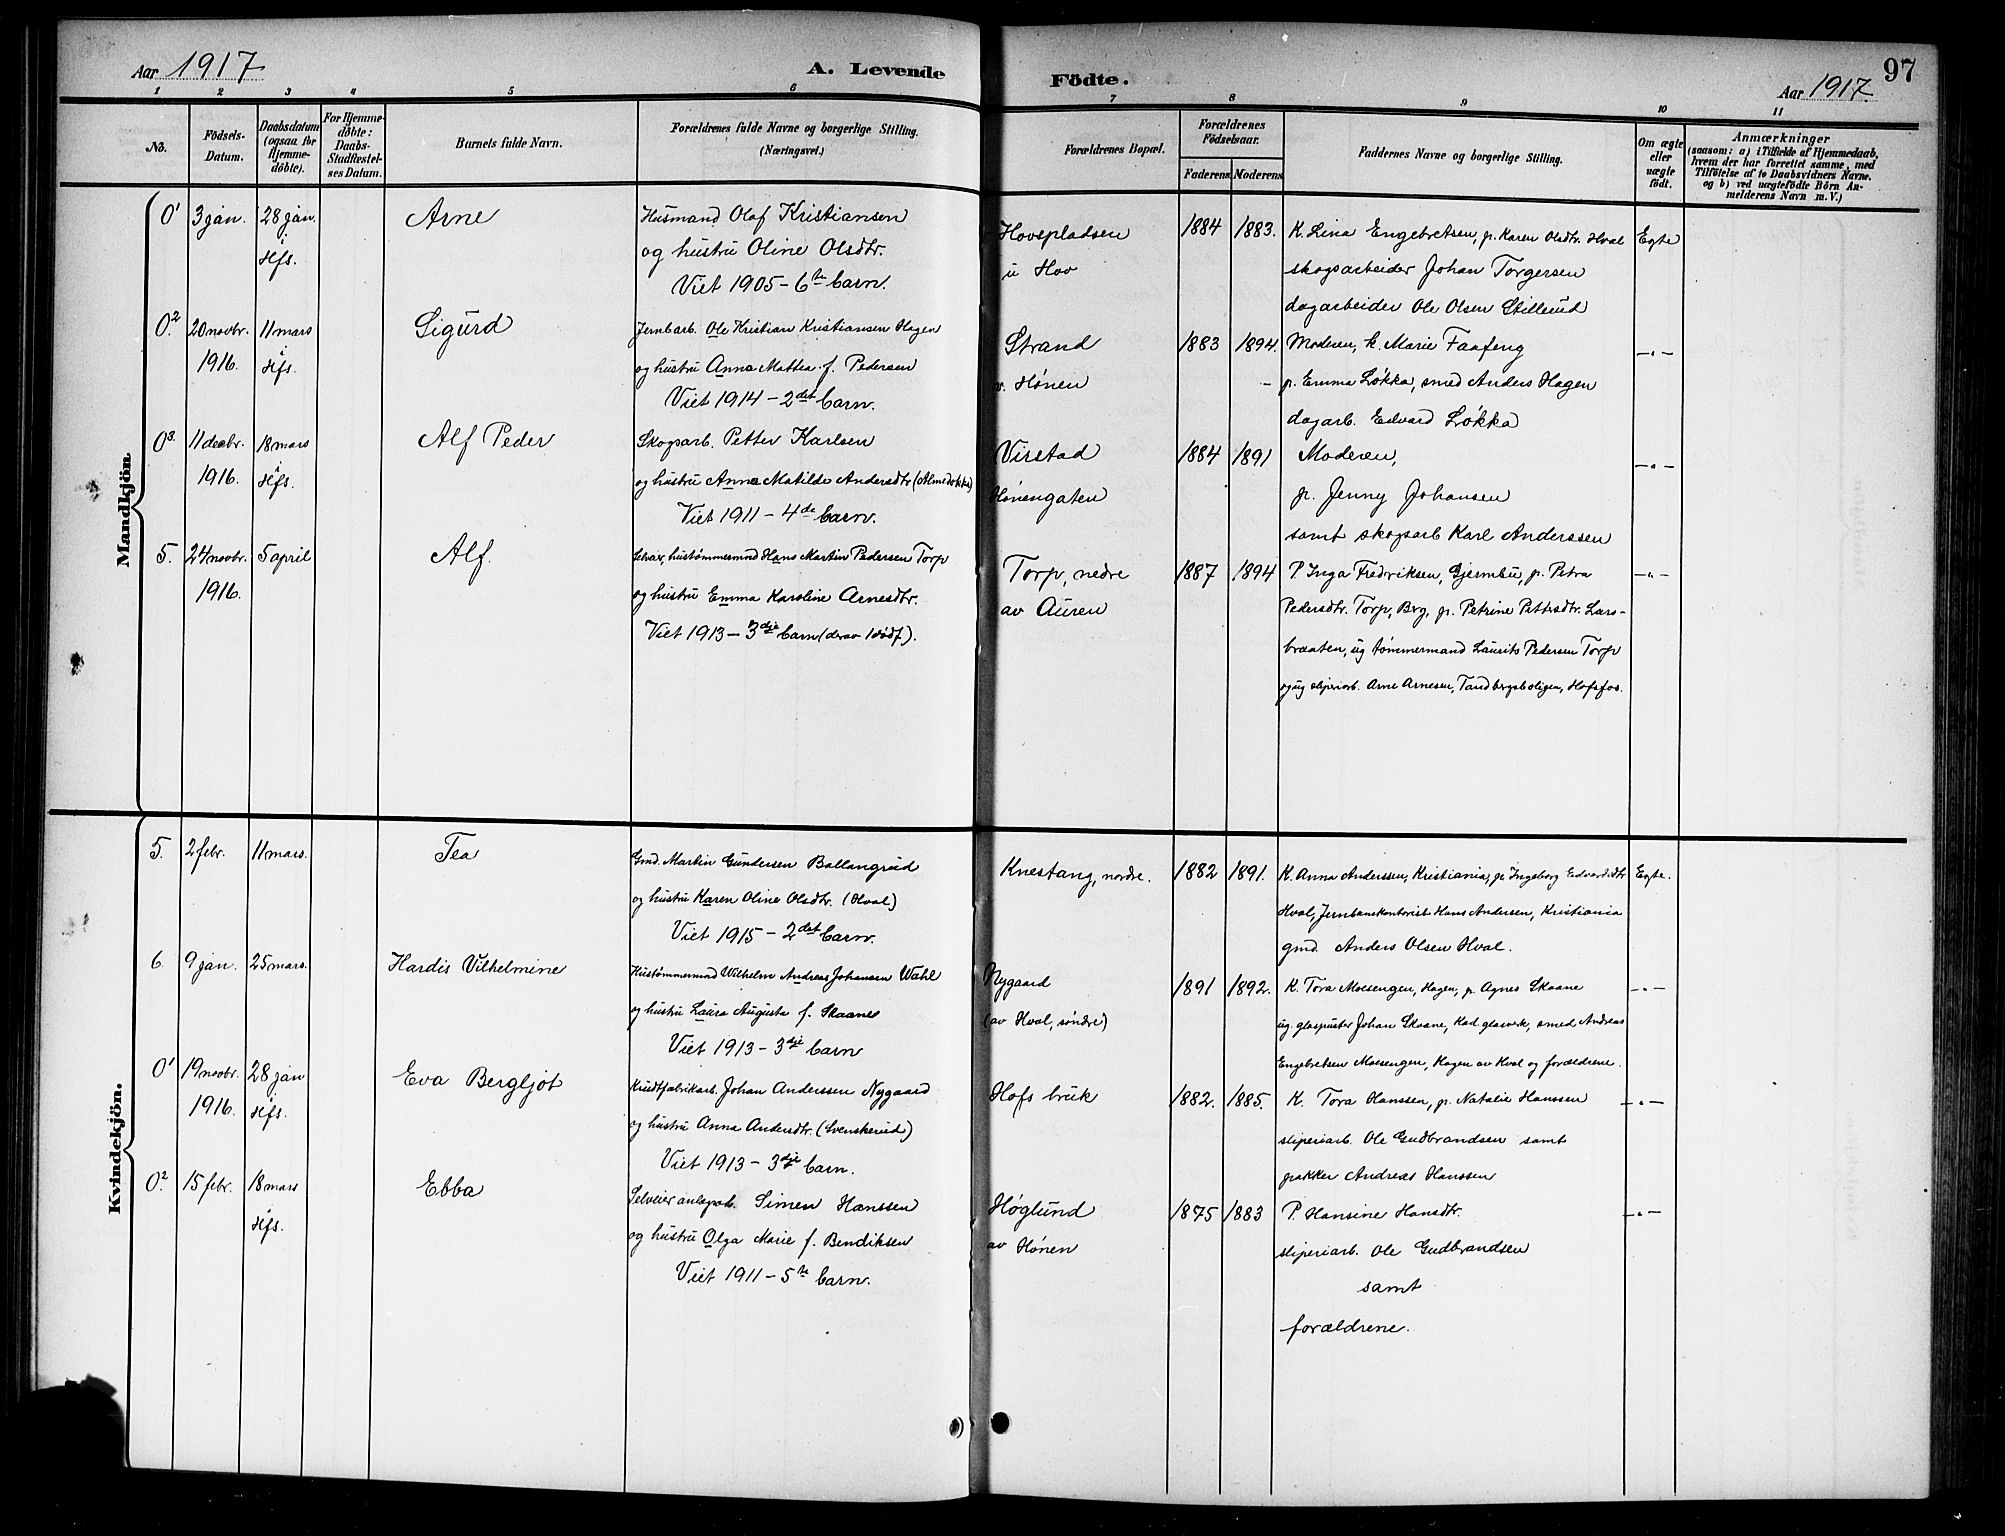 Aar 1917
A. Levende
Födte.
Aar 1917.
97
1 2 3 4 5 6 7 8 9 10 11
No.
Födsels-
Datum.
Daabsdatum
(ogsaa for
Hjemme-
döbte).
For Hjemme-
döbte:
Daabs-
Stadfæstel-
ses Datum.
Barnets fulde Navn.
Forældrenes fulde Navne og borgerlige Stilling.
(Næringsvei.)
Forældrenes Bopæl.
Forældrenes
Födselsaar.
Faderens Moderens
Faddernes Navne og borgerlige Stilling.
Om ægte
eller
uægte
födt.
Anmærkninger
(saasom: a) i Tilfælde af Hjemmedaab,
hvem der har forrettet samme, med
Tilföielse af to Daabsvidners Navne,
og b) ved uægtefödte Börn An-
melderens Navn m. V.)
Mandkjön
0¹ 3 jan. 28 jan. Hfs. Arne
Husmand Olaf Kristiansen
og hustru Oline Olsdtr.
Viet 1905 - 6te barn.
Hovspladsen
u Hov
1884 1883.
K. Lina Engebretsen, p. Karen Olsdtr. Hval
skogsarbeider Johan Torgersen
dagarbeider Ole Olsen Stillerud
Egte
0.² 20 novbr. 1916. 11 mars Hfs. Sigurd
Jernbarb. Ole Kristian Kristiansen Hagen
og hustru Anna Mathea f. Pedersen
Viet 1914 - 2det barn.
Strand
v. Hönen
1883 1894.
Moderen, k. Marie Faafeng
p. Emma Løkka, smed Anders Hagen
dagarb. Edvard Løkka
-"-
0³. 11 decbr. 1916. 18 mars Hfs. Alf Peder
Skogsarb. Petter Karlsen
og hustru Anna Matilde Andersdtr
Viet 1911 - 4de barn.
Virstad
Hønengaten
1884 1891
Moderen,
p. Jenny Johansen
samt skogsarb Karl Anderssen
-"-
5. 24 novbr. 1916. 5 april Alf.
Selveier, hustømmermand Hans Martin Pedersen Torp
og hustru Emma Karoline Arnesdtr.
Viet 1913 - 3dje barn (derav 1 dødf).
Torp, nedre
av Auren
1887 1894
P. Inga Fredriksen, Gjermbu, p. Petra
Pedersdtr. Torp, Brg, p. Petrine Pettersdtr. Lars-
braaten, ug tømmermand Laurits Pedersen Torp
og ug sliperiarb. Arne Arnesen, Tandbergsboligen, Hofsfos.
-"-
Kvindekjön.
5. 2 febr. 11 mars. Tea
Gmd. Martin Gundersen Ballangrud
og hustru Karen Oline Olsdtr. (Hval)
Viet 1915 - 2det barn.
Knestang, nordre.
1882 1891.
K. Anna Anderssen, Kristiania, p. Ingeborg Edvardsdtr
Hval, Jernbanekontorist Hans Andersen, Kristiania
gmd. Anders Olsen Hval.
Egte.
6. 9 jan. 25 mars. Hardis Vilhelmine
Hustømmermand Wilhelm Andreas Johansen Wahl
og hustru Laura Augusta f. Skaane
Viet 1913 - 3dje barn
Nygaard
(av Hval, søndre)
1891 1892.
K. Tora Moesengen, Hagen, p. Agnes Skaane
ug. glaspuster Johan Skaane, Had. glasverk, smed Andreas
Engebretsen Moesengen, Hagen av Hval og forældrene.
-"-
0¹ 19 novbr. 1916. 28 jan Hfs. Eva Bergljot
Krudtfabrikarb. Johan Anderssen Nygaard
og hustru Anna Andersdtr. (Svenskerud)
Viet 1913 - 3dje barn.
Hofs bruk
1882. 1885.
K. Tora Hanssen, p. Natalie Hanssen
sliperiarb. Ole Gudbrandsen samt
pakker Andreas Hanssen
-"-
0.² 15 febr. 18 mars Hfs. Ebba
Selveier anlægsarb. Simen Hanssen
og hustru Olga Marie f. Bendiksen
Viet 1911 - 5te barn.
Høglund
av Hønen
1875 1883
P. Hansine Hansdtr.
sliperiarb. Ole Gudbrandsen
samt
forældrene.
-"-